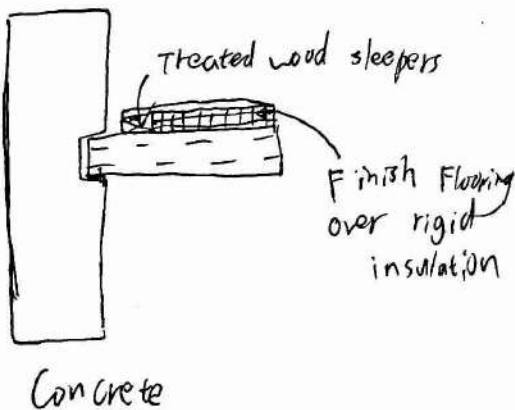 Treated wood sleepers
Finish Flooring
over rigid
insulation
Concrete